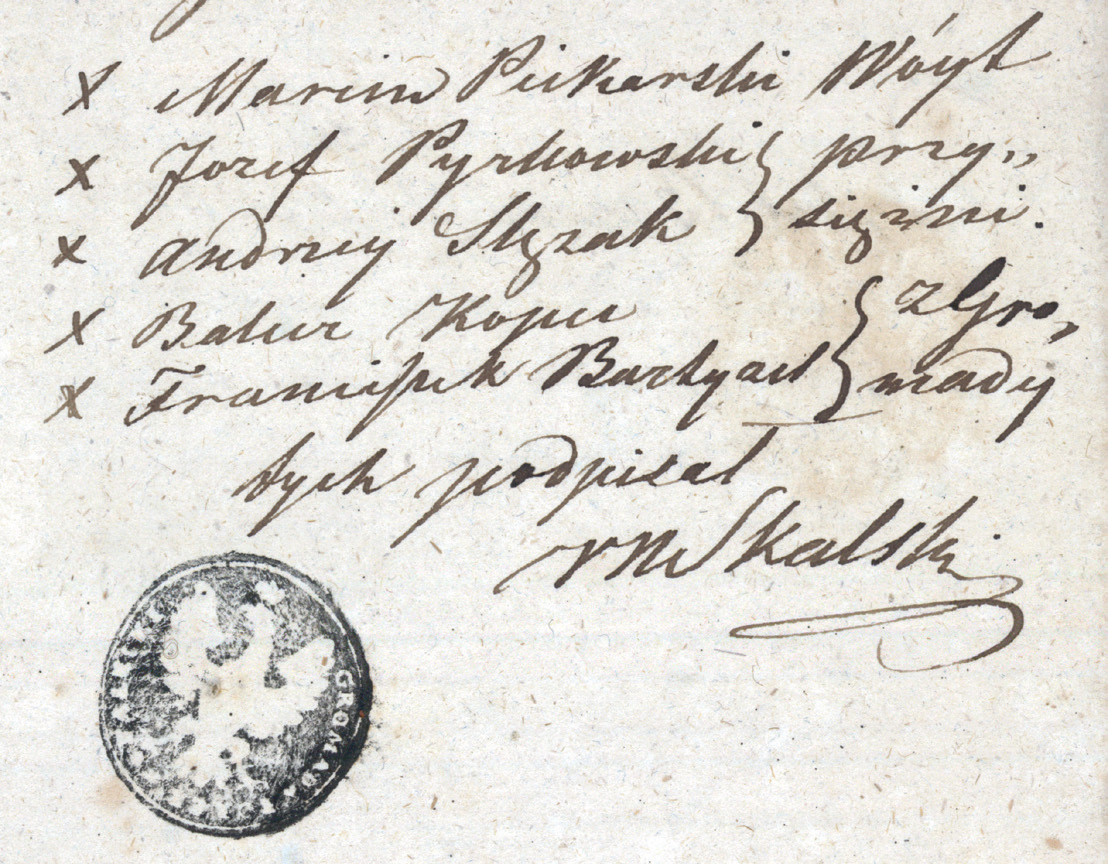 x Marcin Piekarski Wóyt
x Jozef Pyrkowski } przy„
x Andrzey Slęzak } sięzni.
x Balcer Kopec } z Gro„
x Franciszek Bartyzel } mady
tych podpisał
Skalski
GROMAD